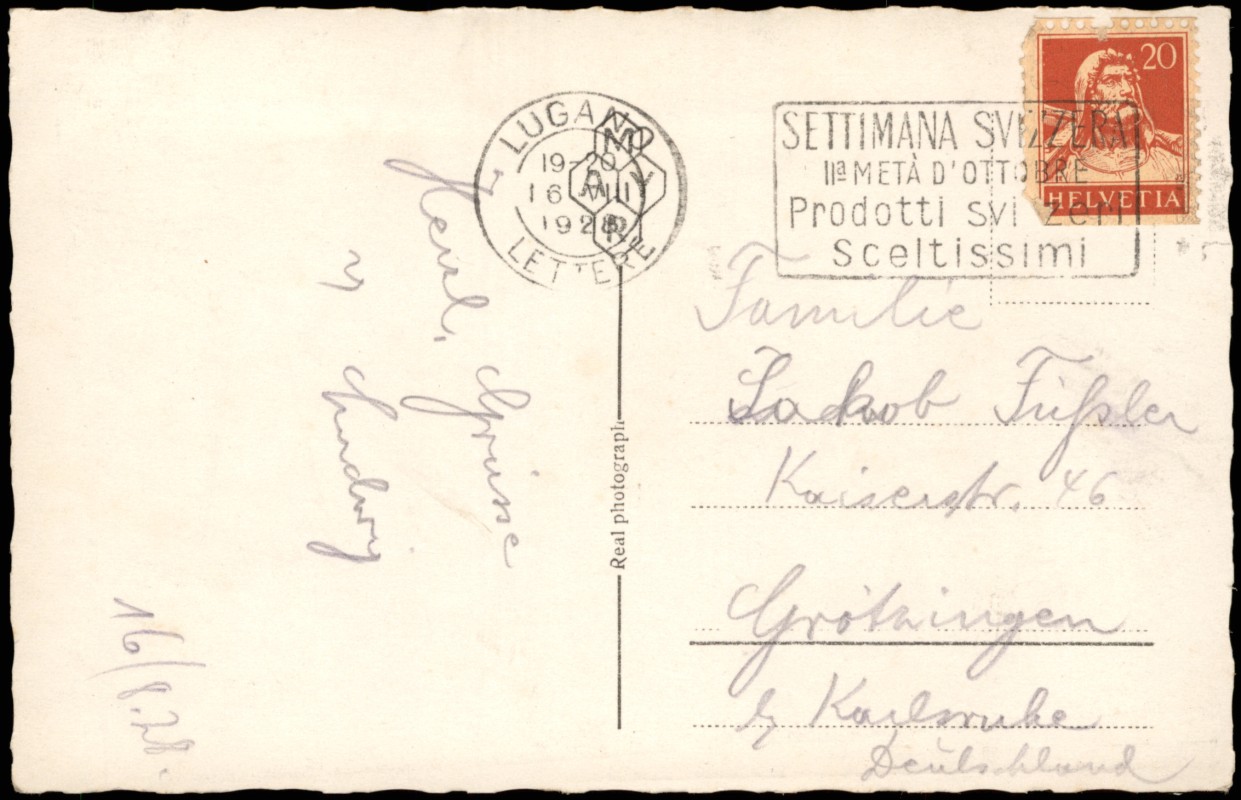 LUGANO
19-20
16 VIII
1928
LETTERE
MAYR
SETTIMANA SVIZZERA
IIª METÀ D'OTTOBRE
Prodotti svizzeri
Sceltissimi
20
HELVETIA
Herzl. Grüsse
v
Ludwig
16/8.28.
Real photograph
Familie
Jakob Füßler
Kaiserstr. 46
Grötzingen
b/ Karlsruhe
Deutschland